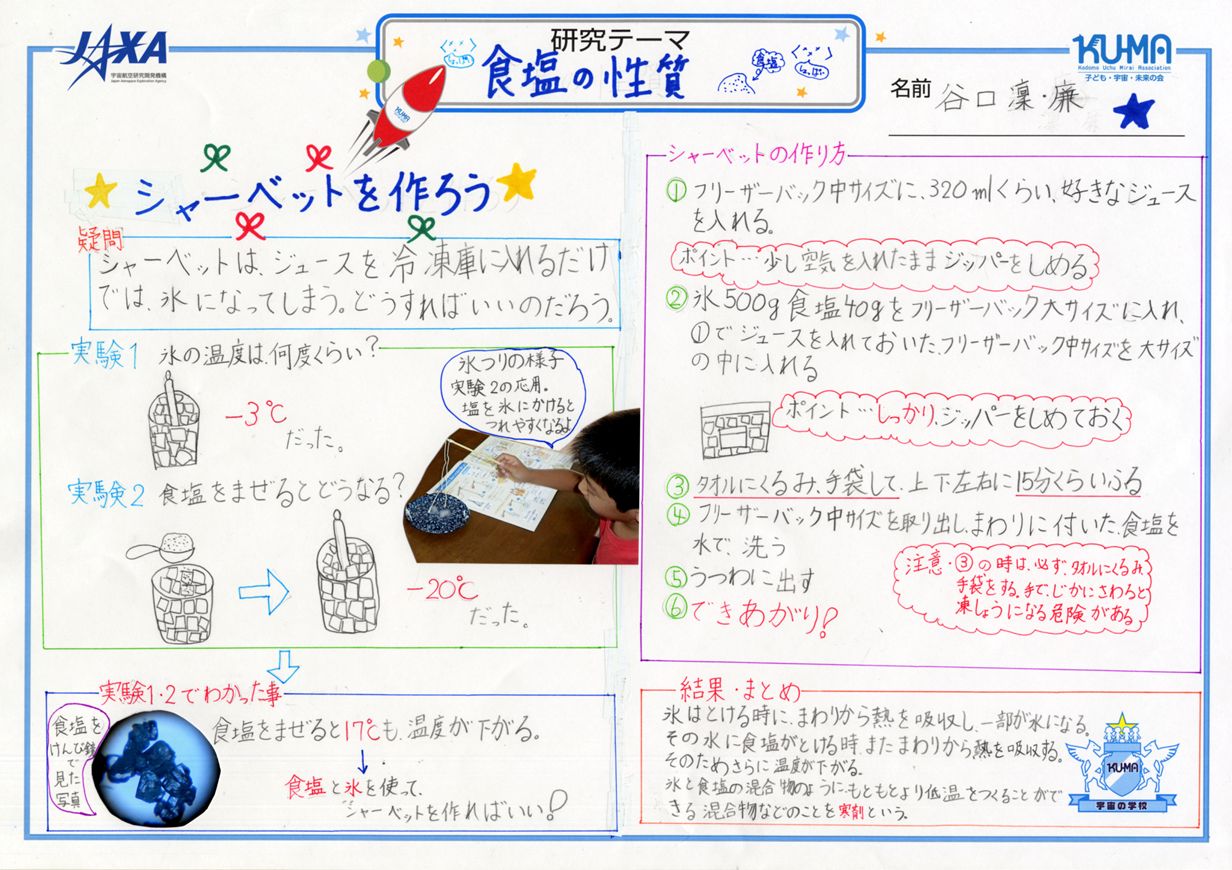 JAXA
宇宙航空研究開発機構
Japan Aerospace Exploration Agency
研究テーマ
食塩の性質
食塩
KUMA
KU-MA
Kodomo Uchu Mirai Association
子ども・宇宙・未来の会
名前 谷口凜・廉
シャーベットを作ろう
疑問
シャーベットは、ジュースを冷凍庫に入れるだけ
では、氷になってしまう。どうすればいいのだろう。
実験1 氷の温度は、何度くらい?
-3℃
だった。
氷つりの様子
実験2の応用。
塩を氷にかけると
つれやすくなるよ
実験2 食塩をまぜるとどうなる?
-20℃
だった。
実験1・2でわかった事
食塩を
けんび鏡
で
見た
写真
食塩をまぜると17℃も、温度が下がる。
食塩と氷を使って、
シャーベットを作ればいい!
シャーベットの作り方
① フリーザーバック中サイズに、320mlくらい、好きなジュース
を入れる。
ポイント…少し空気を入れたままジッパーをしめる
② 氷500g食塩40gをフリーザーバック大サイズに入れ、
①でジュースを入れておいた、フリーザーバック中サイズを大サイズ
の中に入れる
ポイント…しっかり、ジッパーをしめておく
③ タオルにくるみ、手袋して、上下左右に15分くらいふる
④ フリーザーバック中サイズを取り出し、まわりに付いた、食塩を
水で、洗う
⑤ うつわに出す
⑥ できあがり!
注意・③の時は、必ず、タオルにくるみ
手袋をする。手で、じかにさわると
凍しょうになる危険がある
結果・まとめ
氷はとける時に、まわりから熱を吸収し、一部が水になる。
その水に食塩がとける時、またまわりから熱を吸収する。
そのためさらに温度が下がる。
氷と食塩の混合物のように、もともとより低温をつくることがで
きる混合物などのことを寒剤という。
KU-MA
宇宙の学校